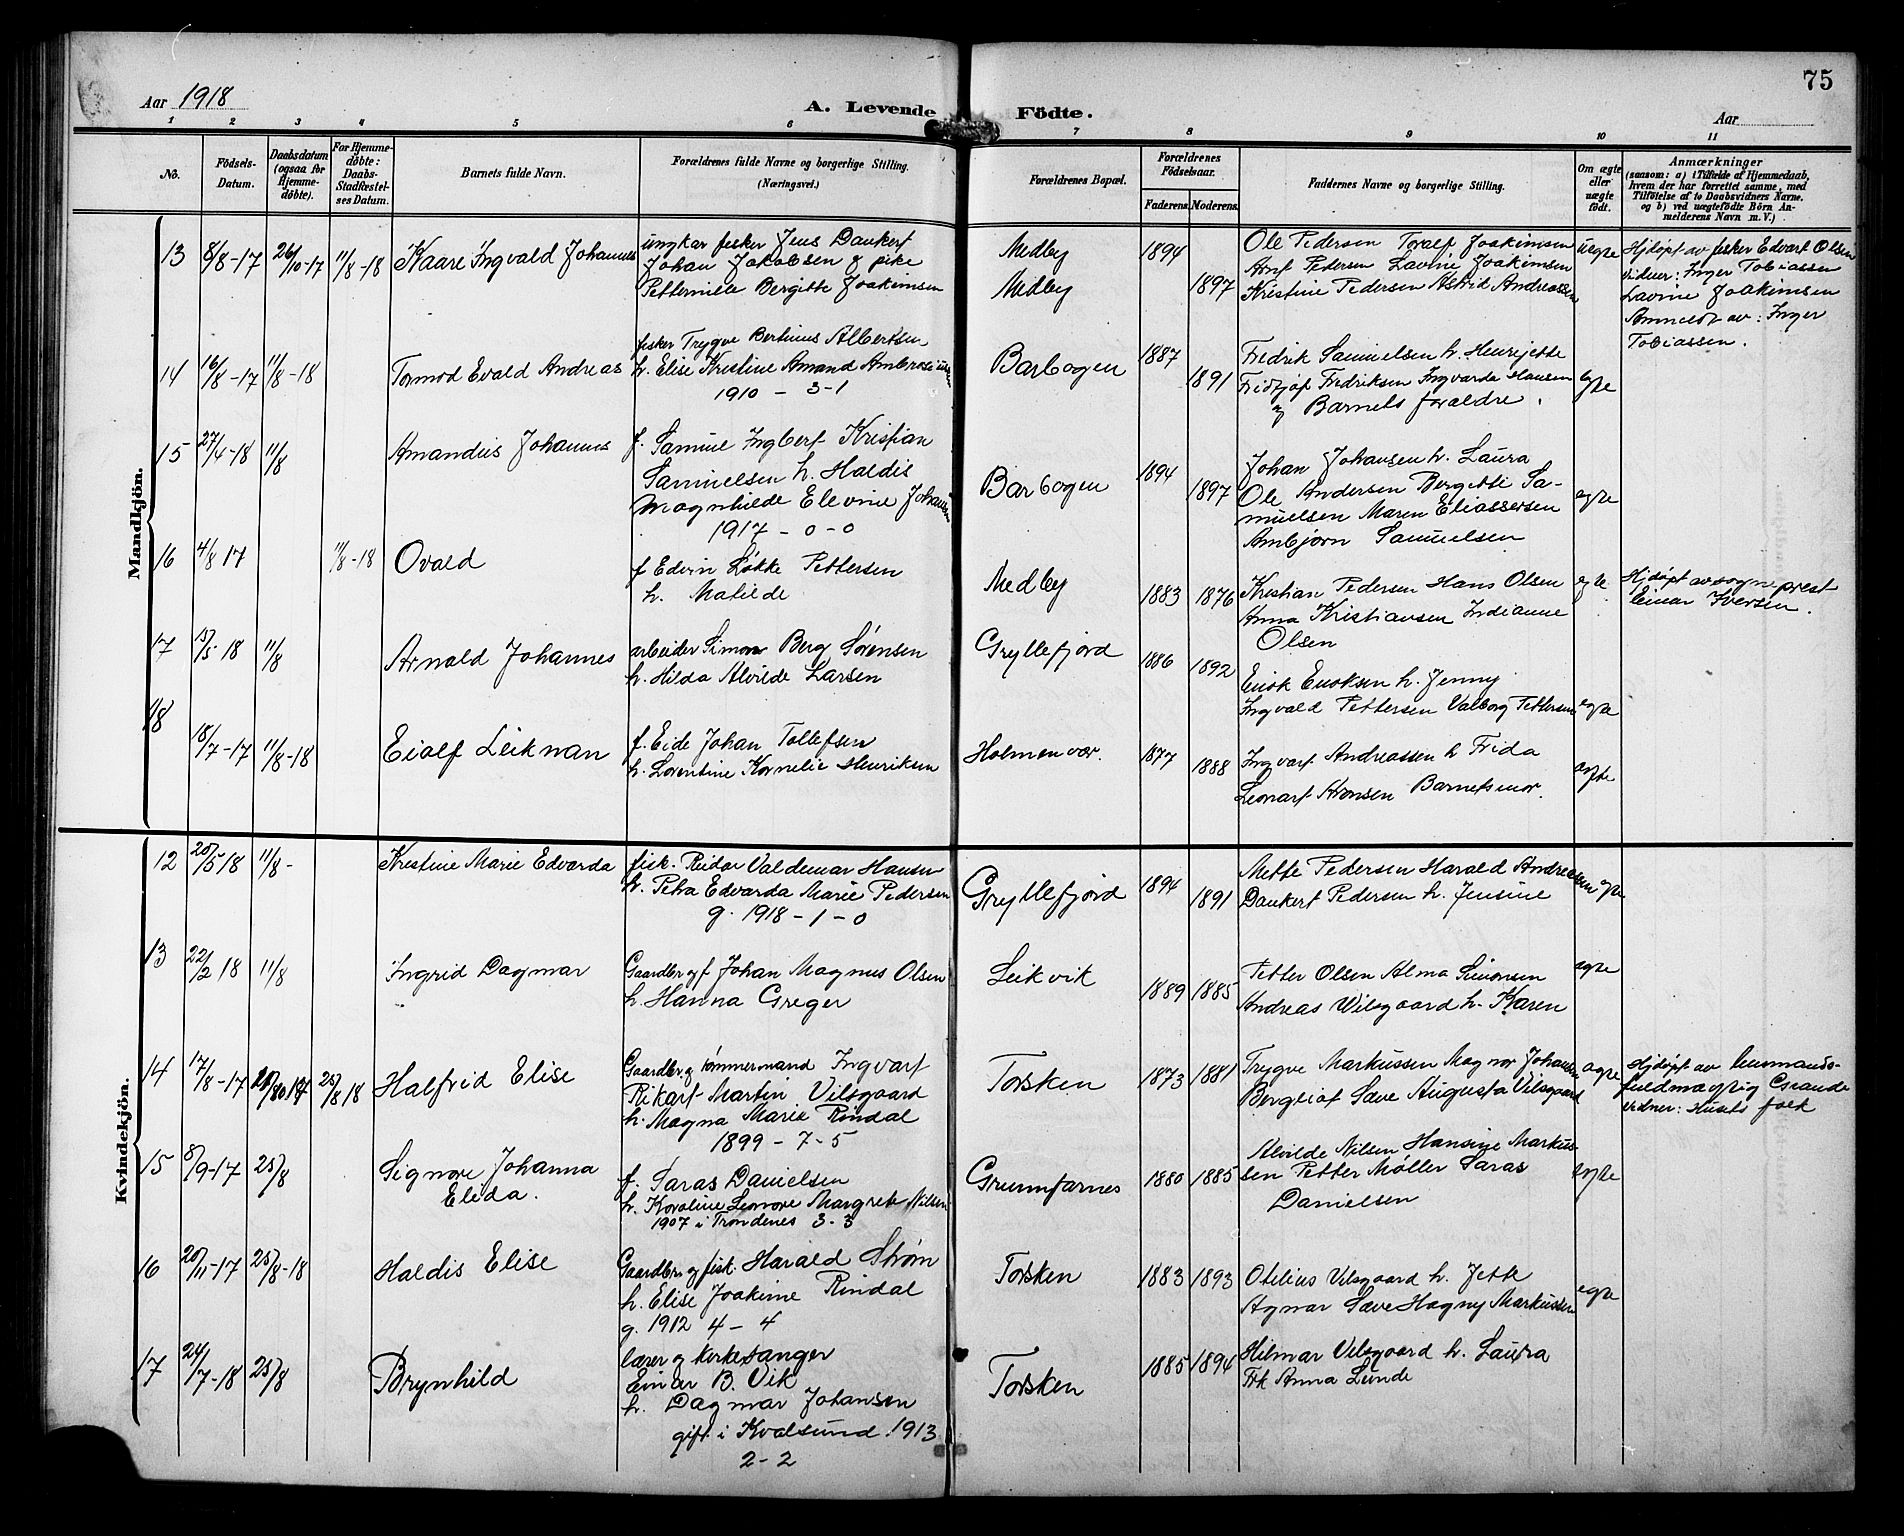 75
Aar 1918
A. Levende Födte.
Aar
1 2 3 4 5 6 7 8 9 10 11
No.
Födsels-Datum.
Daabsdatum (ogsaa for Hjemme-döbte).
For Hjemme-döbte: Daabs-Stadfæstel-ses Datum.
Barnets fulde Navn.
Forældrenes fulde Navne og borgerlige Stilling.
(Næringsvei.)
Forældrenes Bopæl.
Forældrenes Födselsaar.
Faderens. Moderens.
Faddernes Navne og borgerlige Stilling.
Om ægte eller uægte födt.
Anmærkninger
(saasom: a) i Tilfælde af Hjemmedaab,
hvem der har forrettet samme, med
Tilföielse af to Daabsvidners Navne.
og b) ved uægtefödte Börn An-
melderens Navn m. V.)
Mandkjön.
13 8/8-17 26/10-17 11/8-18 Kaare Ingvald Johannes
ungkar fisker Jens Dankert
Johan Jakobsen & pike
Petternille Bergitte Joakimsen
Medby
Medby
1894
1897
Ole Pedersen Toralf Joakimsen
Arnt Pedersen Lavine Joakimsen
Kristine Pedersen Astrid Andreassen
uegte
Hjdöpt av fisker Edvart Olsen
vidner: Inger Tobiassen
Lavine Joakimsen
Anmeldt av: Inger
Tobiassen.
14 16/8-17 11/8-18 Tormod Evald Andreas
fisker Trygve Bertinus Albertsen
h. Elise Kristine Amand Ambrosiussen
1910 - 3-1
Barbogen
1887
1891
Fredrik Samuelsen h. Henrjette
Fridtjof Fredriksen Ingvarda Hansen
og Barnets foraldre.
egte
15 27/4-18 11/8 Amandus Johannes
f. Samuel Ingbert Kristian
Samuelsen h. Haldis
Magnhilde Elevine Johansen
1917 - 0 - 0
Barbogen
1894
1897
Johan Johansen h. Laura
Ole Andersen Bergitte Sa-
muelsen Maren Eliassersen
Arnbjørn Samuelsen
egte
16 4/8 17 11/8-18 Ovald
f Edvin Løkke Pettersen
h. Matilde
Medby
1883 1876
Kristian Pedersen Hans Olsen
Anna Kristiansen Indianne
Olsen
egte
Hjdöpt av sogneprest
Einar Iversen.
17 15/5 18 11/8 Arnold Johannes
arbeider Simon Berg Sørensen
h. Hilda Alvilde Larsen
Gryllefjord
1886 1892
Enok Enoksen h. Jenny
Ingvald Pettersen Valborg Pettersen
egte
18 18/7-17 11/8-18 Eiolf Leiknan
f. Eide Johan Tollefsen
h. Lorentine Kornelie Henriksen
Holmenvær.
1877
1888
Ingvart Andreassen h Frida
Leonart Aronsen Barnets mor.
egte
Kvindekjön.
12 20/5 18 11/8- Kristine Marie Edvarda
fisk. Reidar Valdemar Hansen
h. Petra Edvarda Marie Pedersen
g. 1918 - 1 - 0
Gryllefjord
1894
1891
Mette Pedersen Harald Andreasen
Dankert Pedersen h. Jensine
egte
13 22/2 18 11/8 Ingrid Dagmar
Gaardbr og f Johan Magnus Olsen
h. Hanna Greger
Leikvik
1889 1885
Petter Olsen Alma Simonsen
Andreas Wilsgaard h. Karen
egte
14 17/8-17 25/8 18 Halfrid Elise
Gaardbr og tømmermand Ingvart
Rikart Martin Vilsgaard
h. Magna Marie Rindal
1899 - 7 - 5
Torsken
1873 1881
Trygve Markussen Magnor Johansen
Bergliot Save Augusta Vilsgaard
egte
Hjdöpt av lensmands-
fuldmægtig Grande
vidner: Husets folk
15 8/9-17 25/8 Signore Johanna
Elida.
f. Saras Danielsen
h. Karoline Leonore Margrete Nilsen
1907 i Trondenes 3-3
Grunnfarnes
1880 1885
Alvilde Nilsen Hansine Markus-
sen Petter Møller Saras
Danielsen
egte
16 20/11-17 25/8-18 Haldis Elise
Gaardbr. og fisk. Harald Strøm
h. Elise Joakime Rindal
g. 1912 4 - 4
Torsken
1883 1893
Otelius Vilsgaard h. Jette
Agnar Save Hagny Markussen
egte
17 24/7-18 25/8 Brynhild
lærer og kirkesanger
Einar B. Vik
h. Dagmar Johansen
gift i Kvalsund 1913
2-2
Torsken
1885 1894
Hilmar Vilsgaard h. Laura
Frk Anna Lunde